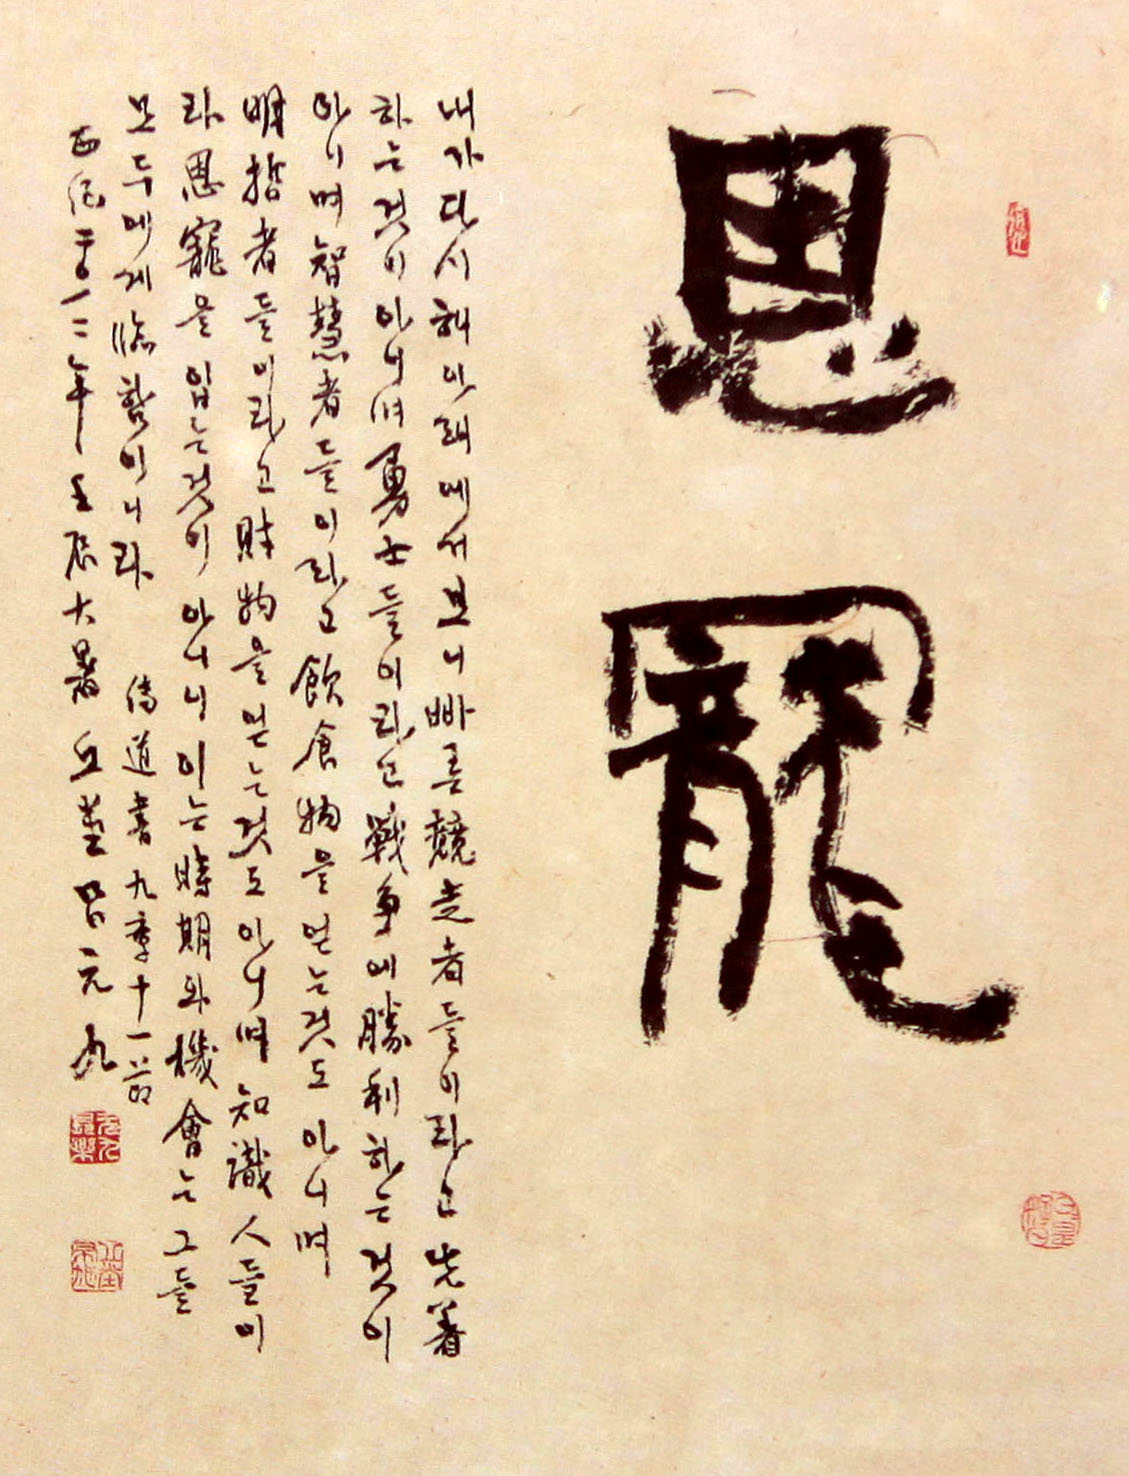 恩寵
내가 다시 해 아래에서 보니 빠른 競走者들이라고 先着
하는것이 아니며 勇士들이라고 戰爭에 勝利하는것이
아니며 智慧者들이라고 飮食物을 얻는것도 아니며
明哲者들이라고 財物을 얻는것도 아니며 知識人들이
라 恩寵을 입는것이 아니니 이는 時期와 機會는 그들
모두에게 臨함이니라 傳道書 九章 十一節
西紀二〇一二年 壬辰 大暑 丘堂 呂元九